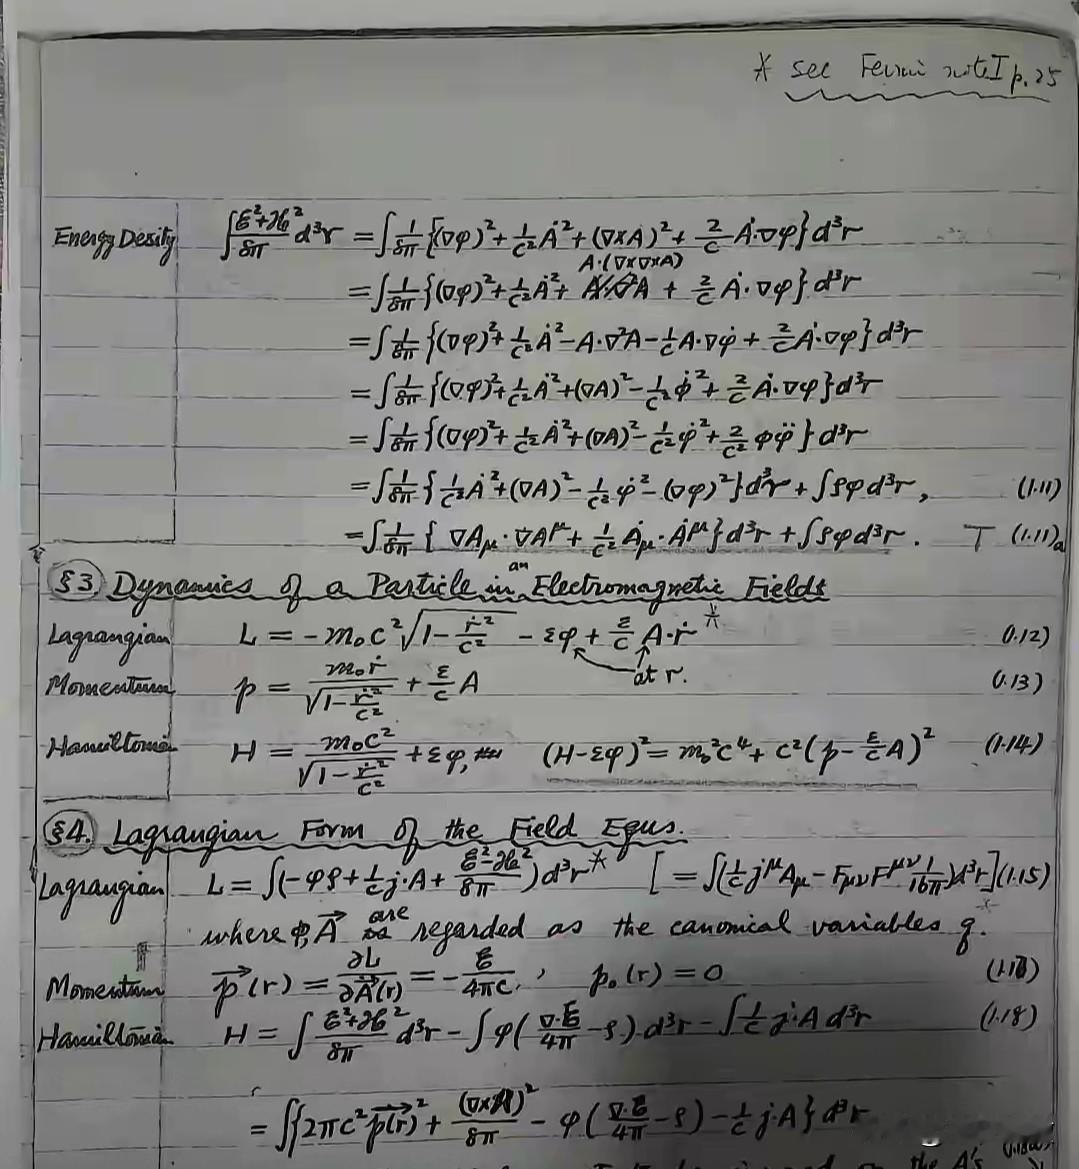 * see Fermi note I p. 25
Energy Desity ∫(ℰ²+ℋ²)/8π d³r = ∫1/8π {(∇φ)² + 1/c² Ȧ² + (∇×A)² + 2/c Ȧ·∇φ} d³r
A·(∇×∇×A)
= ∫1/8π {(∇φ)² + 1/c² Ȧ² + + 2/c Ȧ·∇φ} d³r
= ∫1/8π {(∇φ)² + 1/c² Ȧ² − A·∇²A − 1/c A·∇φ̇ + 2/c Ȧ·∇φ} d³r
= ∫1/8π {(∇φ)² + 1/c² Ȧ² + (∇A)² − 1/c² φ̇² + 2/c Ȧ·∇φ} d³r
= ∫1/8π {(∇φ)² + 1/c² Ȧ² + (∇A)² − 1/c² φ̇² + 2/c² φφ̈} d³r
= ∫1/8π {1/c² Ȧ² + (∇A)² − 1/c² φ̇² − (∇φ)²} d³r + ∫ρφ d³r, (1.11)
= ∫1/8π {∇Aμ·∇A^μ + 1/c² Ȧμ·Ȧ^μ} d³r + ∫ρφ d³r. T (1.11)a
§3. Dynamics of a Particle in an Electromagnetic Fields
Lagrangian L = −m₀c²√(1 − ṙ²/c²) − εφ + ε/c A·ṙ * (1.12)
at r.
Momentum p = m₀ṙ/√(1 − ṙ²/c²) + ε/c A (1.13)
Hamiltonia H = m₀c²/√(1 − ṙ²/c²) + εφ, (H − εφ)² = m₀²c⁴ + c²(p − ε/c A)² (1.14)
§4. Lagrangian Form of the Field Equs.
Lagrangian L = ∫(−φρ + 1/c j·A + (ℰ²−ℋ²)/8π) d³r * [= ∫(1/c j^μ Aμ − Fμν F^μν 1/16π) d³r] (1.15)
where φ, A⃗ are regarded as the canonical variables q.
Momentum p⃗(r) = ∂L/∂A⃗̇(r) = −ℰ/4πc, p₀(r) = 0
Hamiltonian H = ∫(ℰ²+ℋ²)/8π d³r − ∫φ(∇·ℰ/4π − ρ) d³r − ∫1/c j·A d³r (1.18)
= ∫{2πc² p⃗(r)² + (∇×A)²/8π − φ(∇·ℰ/4π − ρ) − 1/c j·A} d³r
on the A's